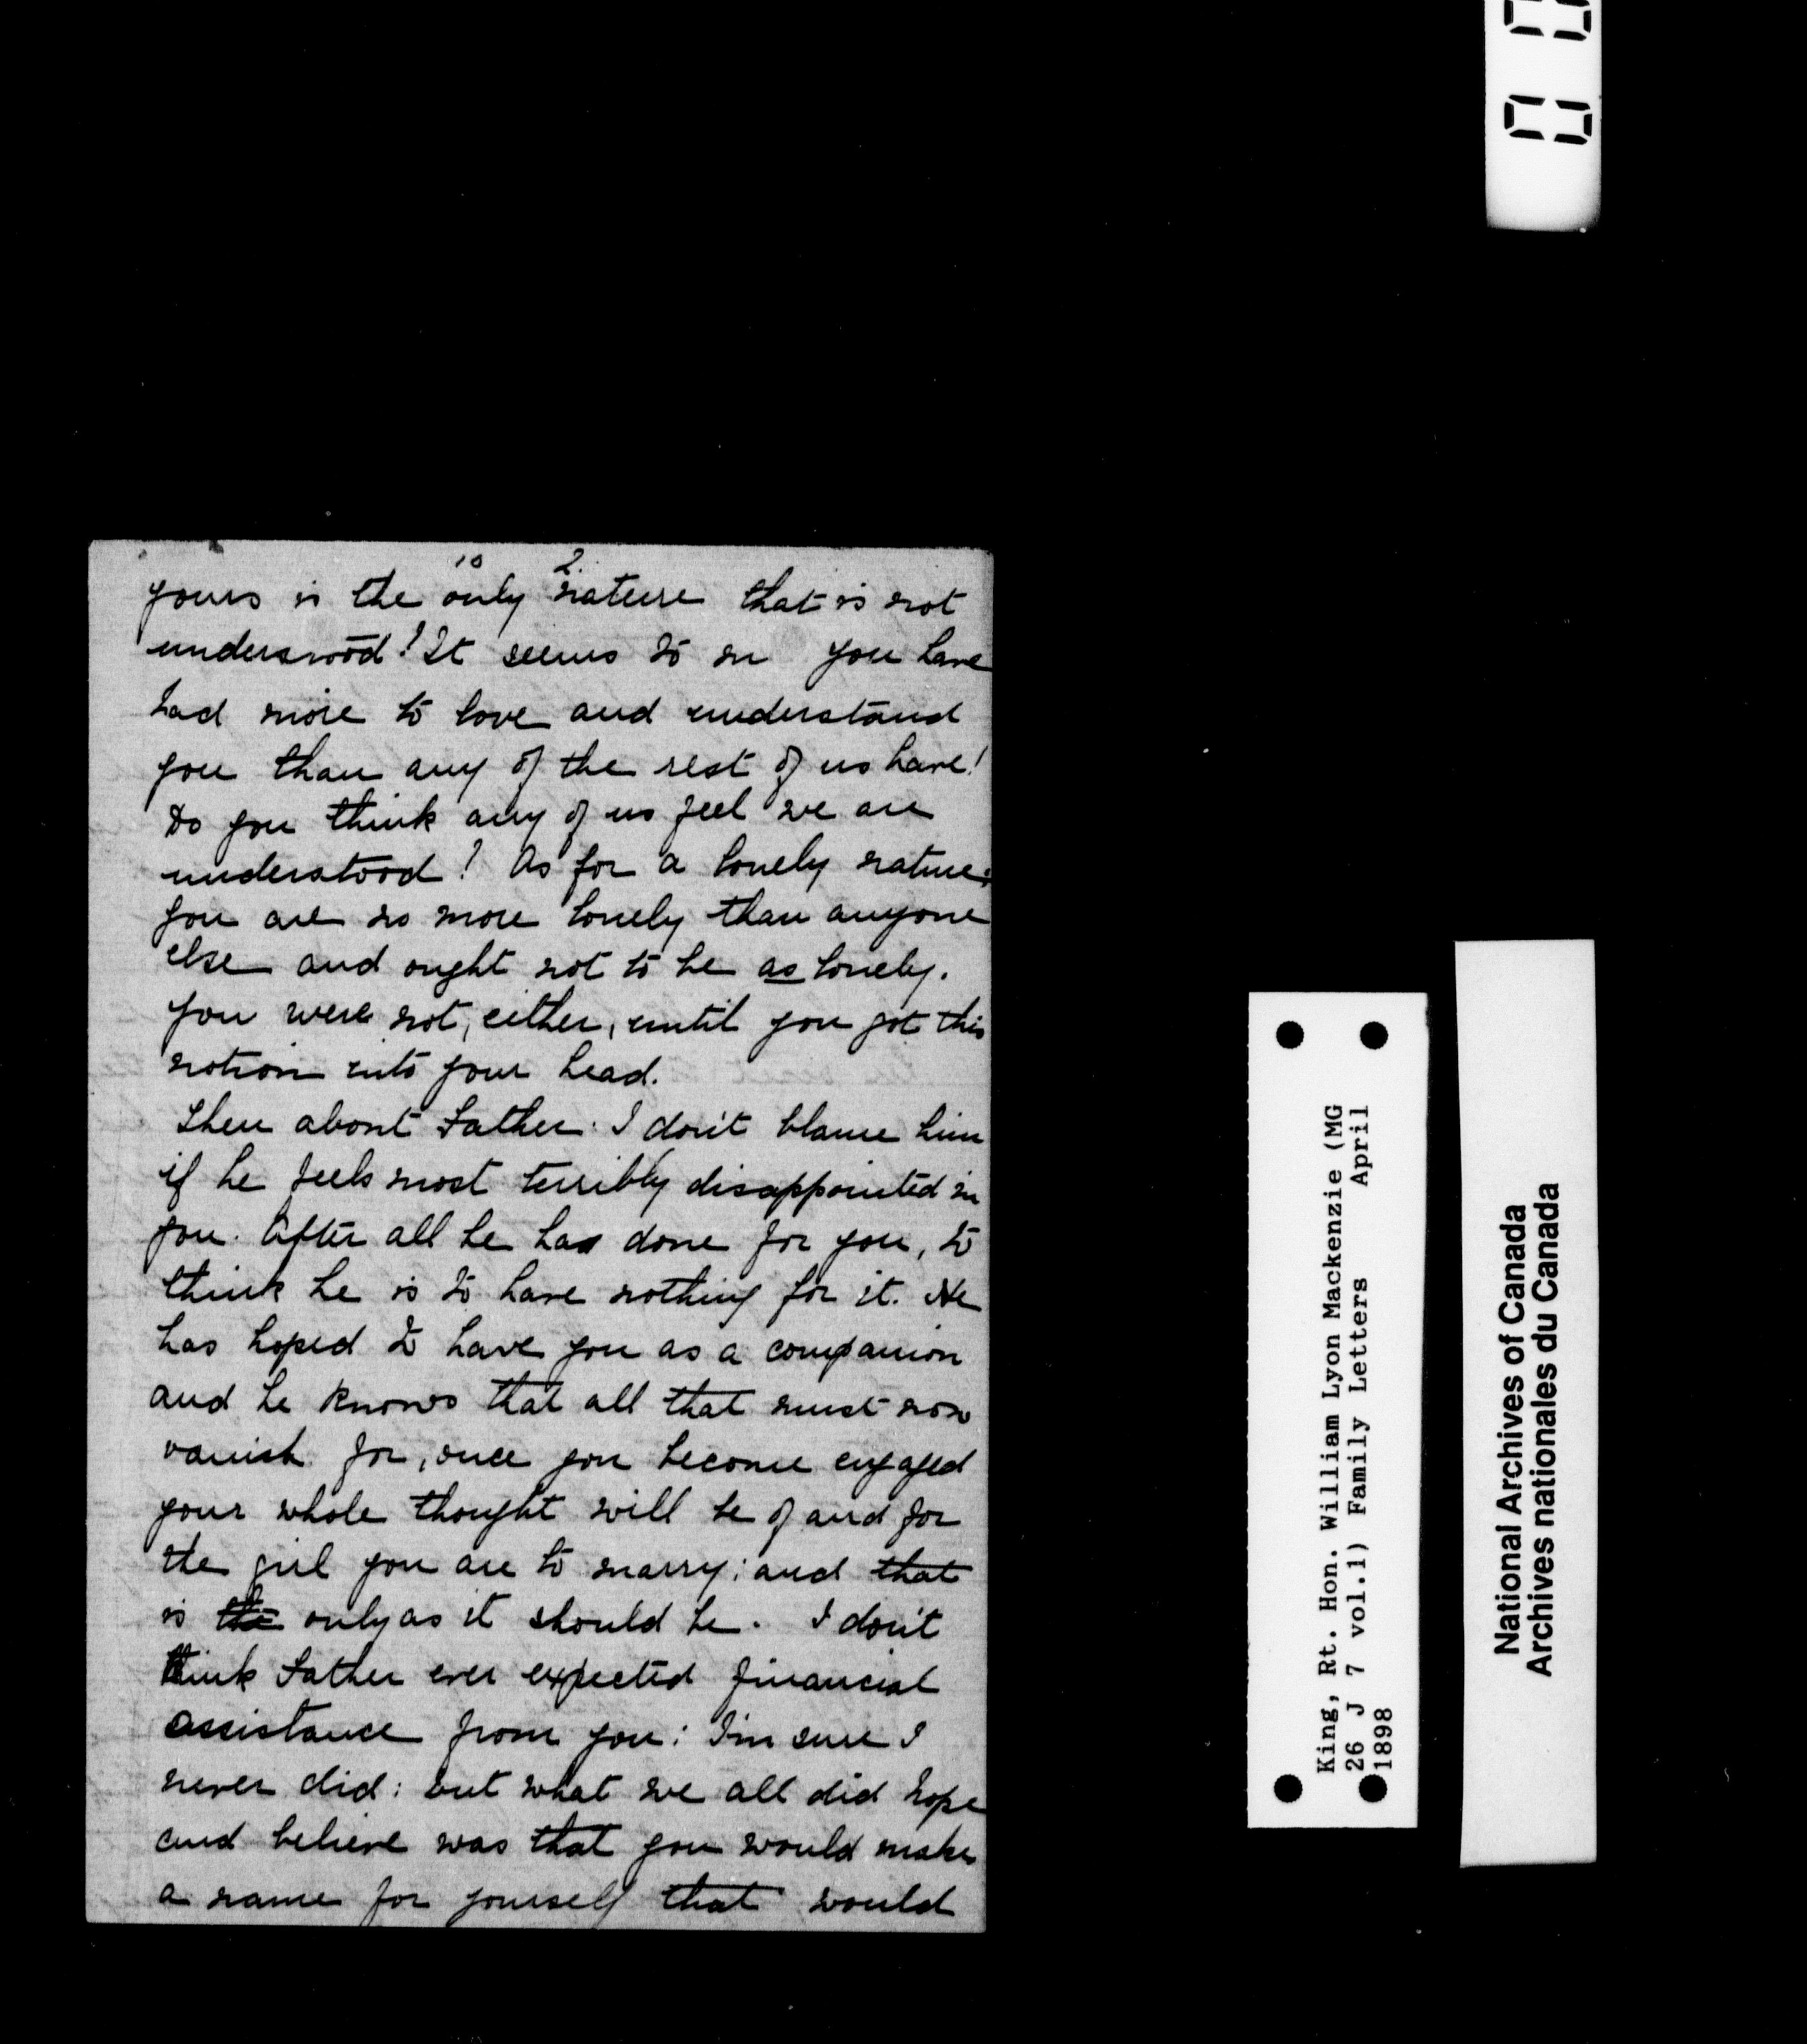 10 2.
yours is the only nature that is not
understood! It seems to me you have
had more to love and understand
you than any of the rest of us have!
Do you think any of us feel we are
understood! As for a lonely nature:
you are no more lonely than anyone
else and ought not to be as lonely.
You were not, either, until you got this
notion into your head.
Then about Father. I don't blame him
if he feels most terribly disappointed in
you. After all he has done for you, to
think he is to have nothing for it. He
has hoped to have you as a companion
and he knows that all that must now
vanish for, once you become engaged
your whole thought will be of and for
the girl you are to marry; and that
is the only as it should be. I don't
think Father ever expected financial
assistance from you: I'm sure I
never did: but what we all did hope
and believe was that you would make
a name for yourself that would
King, Rt. Hon. William Lyon Mackenzie (MG
26 J 7 vol.1) Family Letters April
1898
National Archives of Canada
Archives nationales du Canada